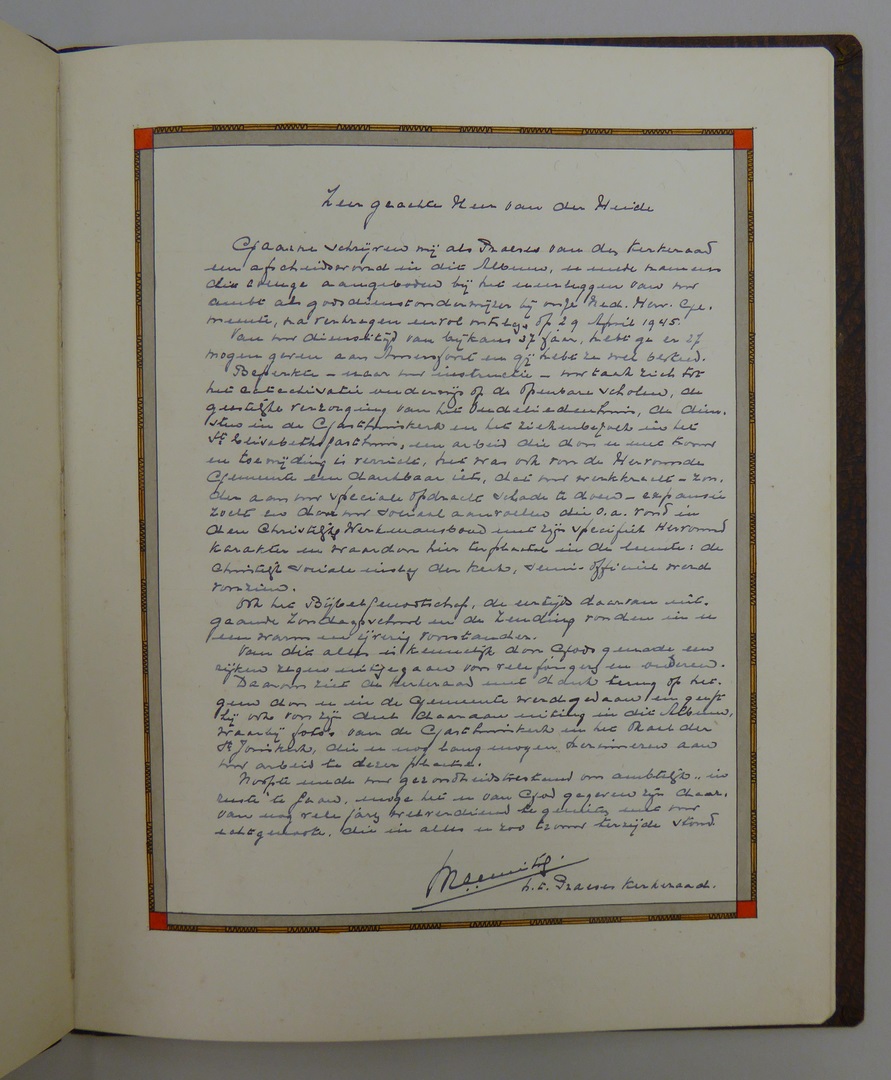 Zeer geachte Heer van der Heide
Gaarne schrijven wij als Praeses van den Kerkeraad
een afscheidswoord in dit Album, u mede namens
dit college aangeboden bij het neerleggen van uw
ambt als godsdienstonderwijzer bij onze Ned. Herv. Ge-
meente, na verkregen eervol ontslag op 29 April 1945.
Van uw diensttijd van bijkans 37 jaar, hebt ge er 27
mogen geven aan Amersfoort en gij hebt ze wel besteed.
Beperkte - naar uw instructie - uw taak zich tot
het catechisatie onderwijs op de openbare scholen, de
geestelijke verzorging van het Oudeliedenhuis, de dien-
sten in de Gasthuiskerk en het ziekenbezoek in het
St Elisabethsgasthuis, een arbeid die door u met trouw
en toewijding is verricht, het was ook voor de Hervormde
Gemeente een dankbaar iets, dat uw werkkracht - zon-
der aan uw speciale opdracht schade te doen - expansie
zocht en door uw sociaal aanvoelen die o.a. vond in
den Christelijk Werkmansbond met zijn specifiek Hervormd
karakter en waardoor hier ter plaatse in de leemte: de
Christelijk sociale inslag der kerk, semi-officieel werd
voorzien.
Ook het Bijbelgenootschap, de eertijds daarvan uit-
gaande Zondagsschool en de Zending vonden in u
een warm en ijverig voorstander.
Van dit alles is kennelijk door Gods genade een
rijken zegen uitgegaan voor vele jongeren en ouderen.
Daarom ziet de Kerkeraad met dank terug op het-
geen door u in de Gemeente werd gedaan en geeft
hij ook voor zijn deel daaraan uiting in dit Album,
waarbij foto's van de Gasthuiskerk en het Koor der
St Joriskerk, die u nog lang mogen herinneren aan
uw arbeid te dezer plaatse.
Noopte mede uw gezondheidstoestand om ambtelijk "in
ruste" te gaan, moge het u van God gegeven zijn daar-
van nog vele jaren welverdiend te genieten met uw
echtgenoote, die in alles u zoo trouw terzijde stond.
h.t. Praeses Kerkeraad.